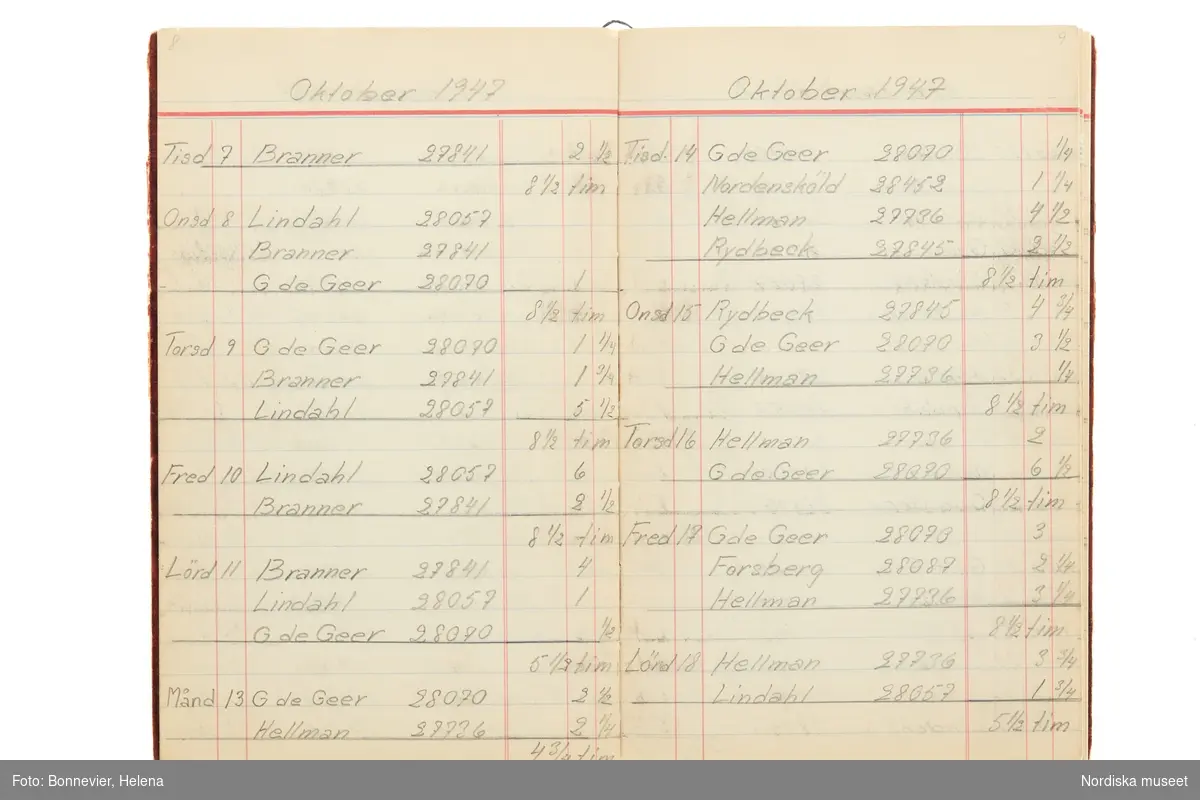 8
Oktober 1947
Tisd 7 Branner 27841 2 1/2
8 1/2 tim
Onsd 8 Lindahl 28057
Branner 27841
G de Geer 28070 1
8 1/2 tim
Torsd 9 G de Geer 28070 1 1/4
Branner 27841 1 3/4
Lindahl 28057 5 1/2
8 1/2 tim
Fred 10 Lindahl 28057 6
Branner 27841 2 1/2
8 1/2 tim
Lörd 11 Branner 27841 4
Lindahl 28057 1
G de Geer 28070 1/2
5 1/2 tim
Månd 13 G de Geer 28070 2 1/2
Hellman 27736 2 1/4
4 3/4 tim
9
Oktober 1947
Tisd 14 G de Geer 28070 1/4
Nordensköld 28452 1 1/4
Hellman 27736 4 1/2
Rydbeck 27845 2 1/2
8 1/2 tim
Onsd 15 Rydbeck 27845 4 3/4
G de Geer 28070 3 1/2
Hellman 27736 1/4
8 1/2 tim
Torsd 16 Hellman 27736 2
G de Geer 28070 6 1/2
8 1/2 tim
Fred 17 G de Geer 28070 3
Forsberg 28087 2 1/4
Hellman 27736 3 1/4
8 1/2 tim
Lörd 18 Hellman 27736 3 3/4
Lindahl 28057 1 3/4
5 1/2 tim
Foto: Bonnevier, Helena
Nordiska museet